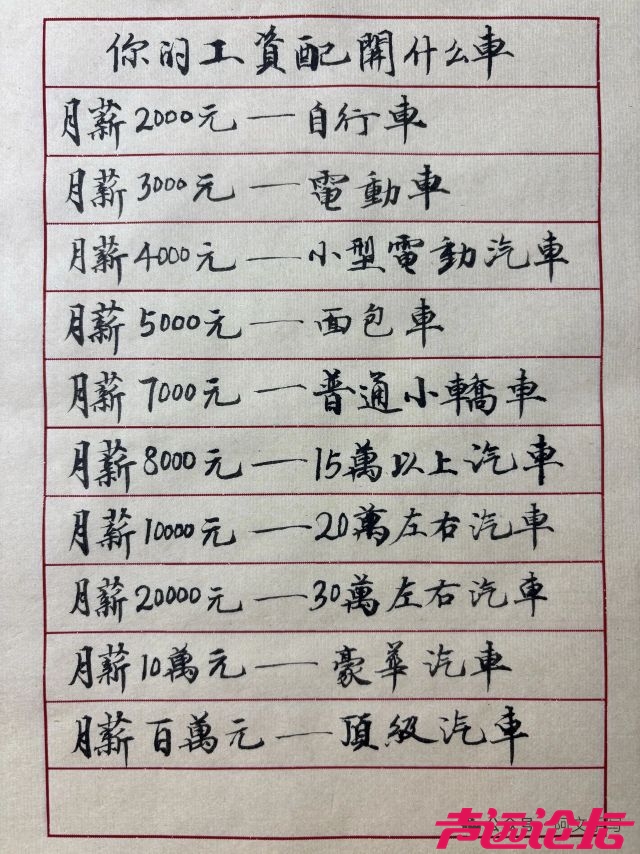 你的工資配開什么車
月薪2000元—自行車
月薪3000元—電動車
月薪4000元—小型電動汽車
月薪5000元—面包車
月薪7000元—普通小轎車
月薪8000元—15萬以上汽車
月薪10000元—20萬左右汽車
月薪20000元—30萬左右汽車
月薪10萬元—豪華汽車
月薪百萬元—頂級汽車
声远论坛